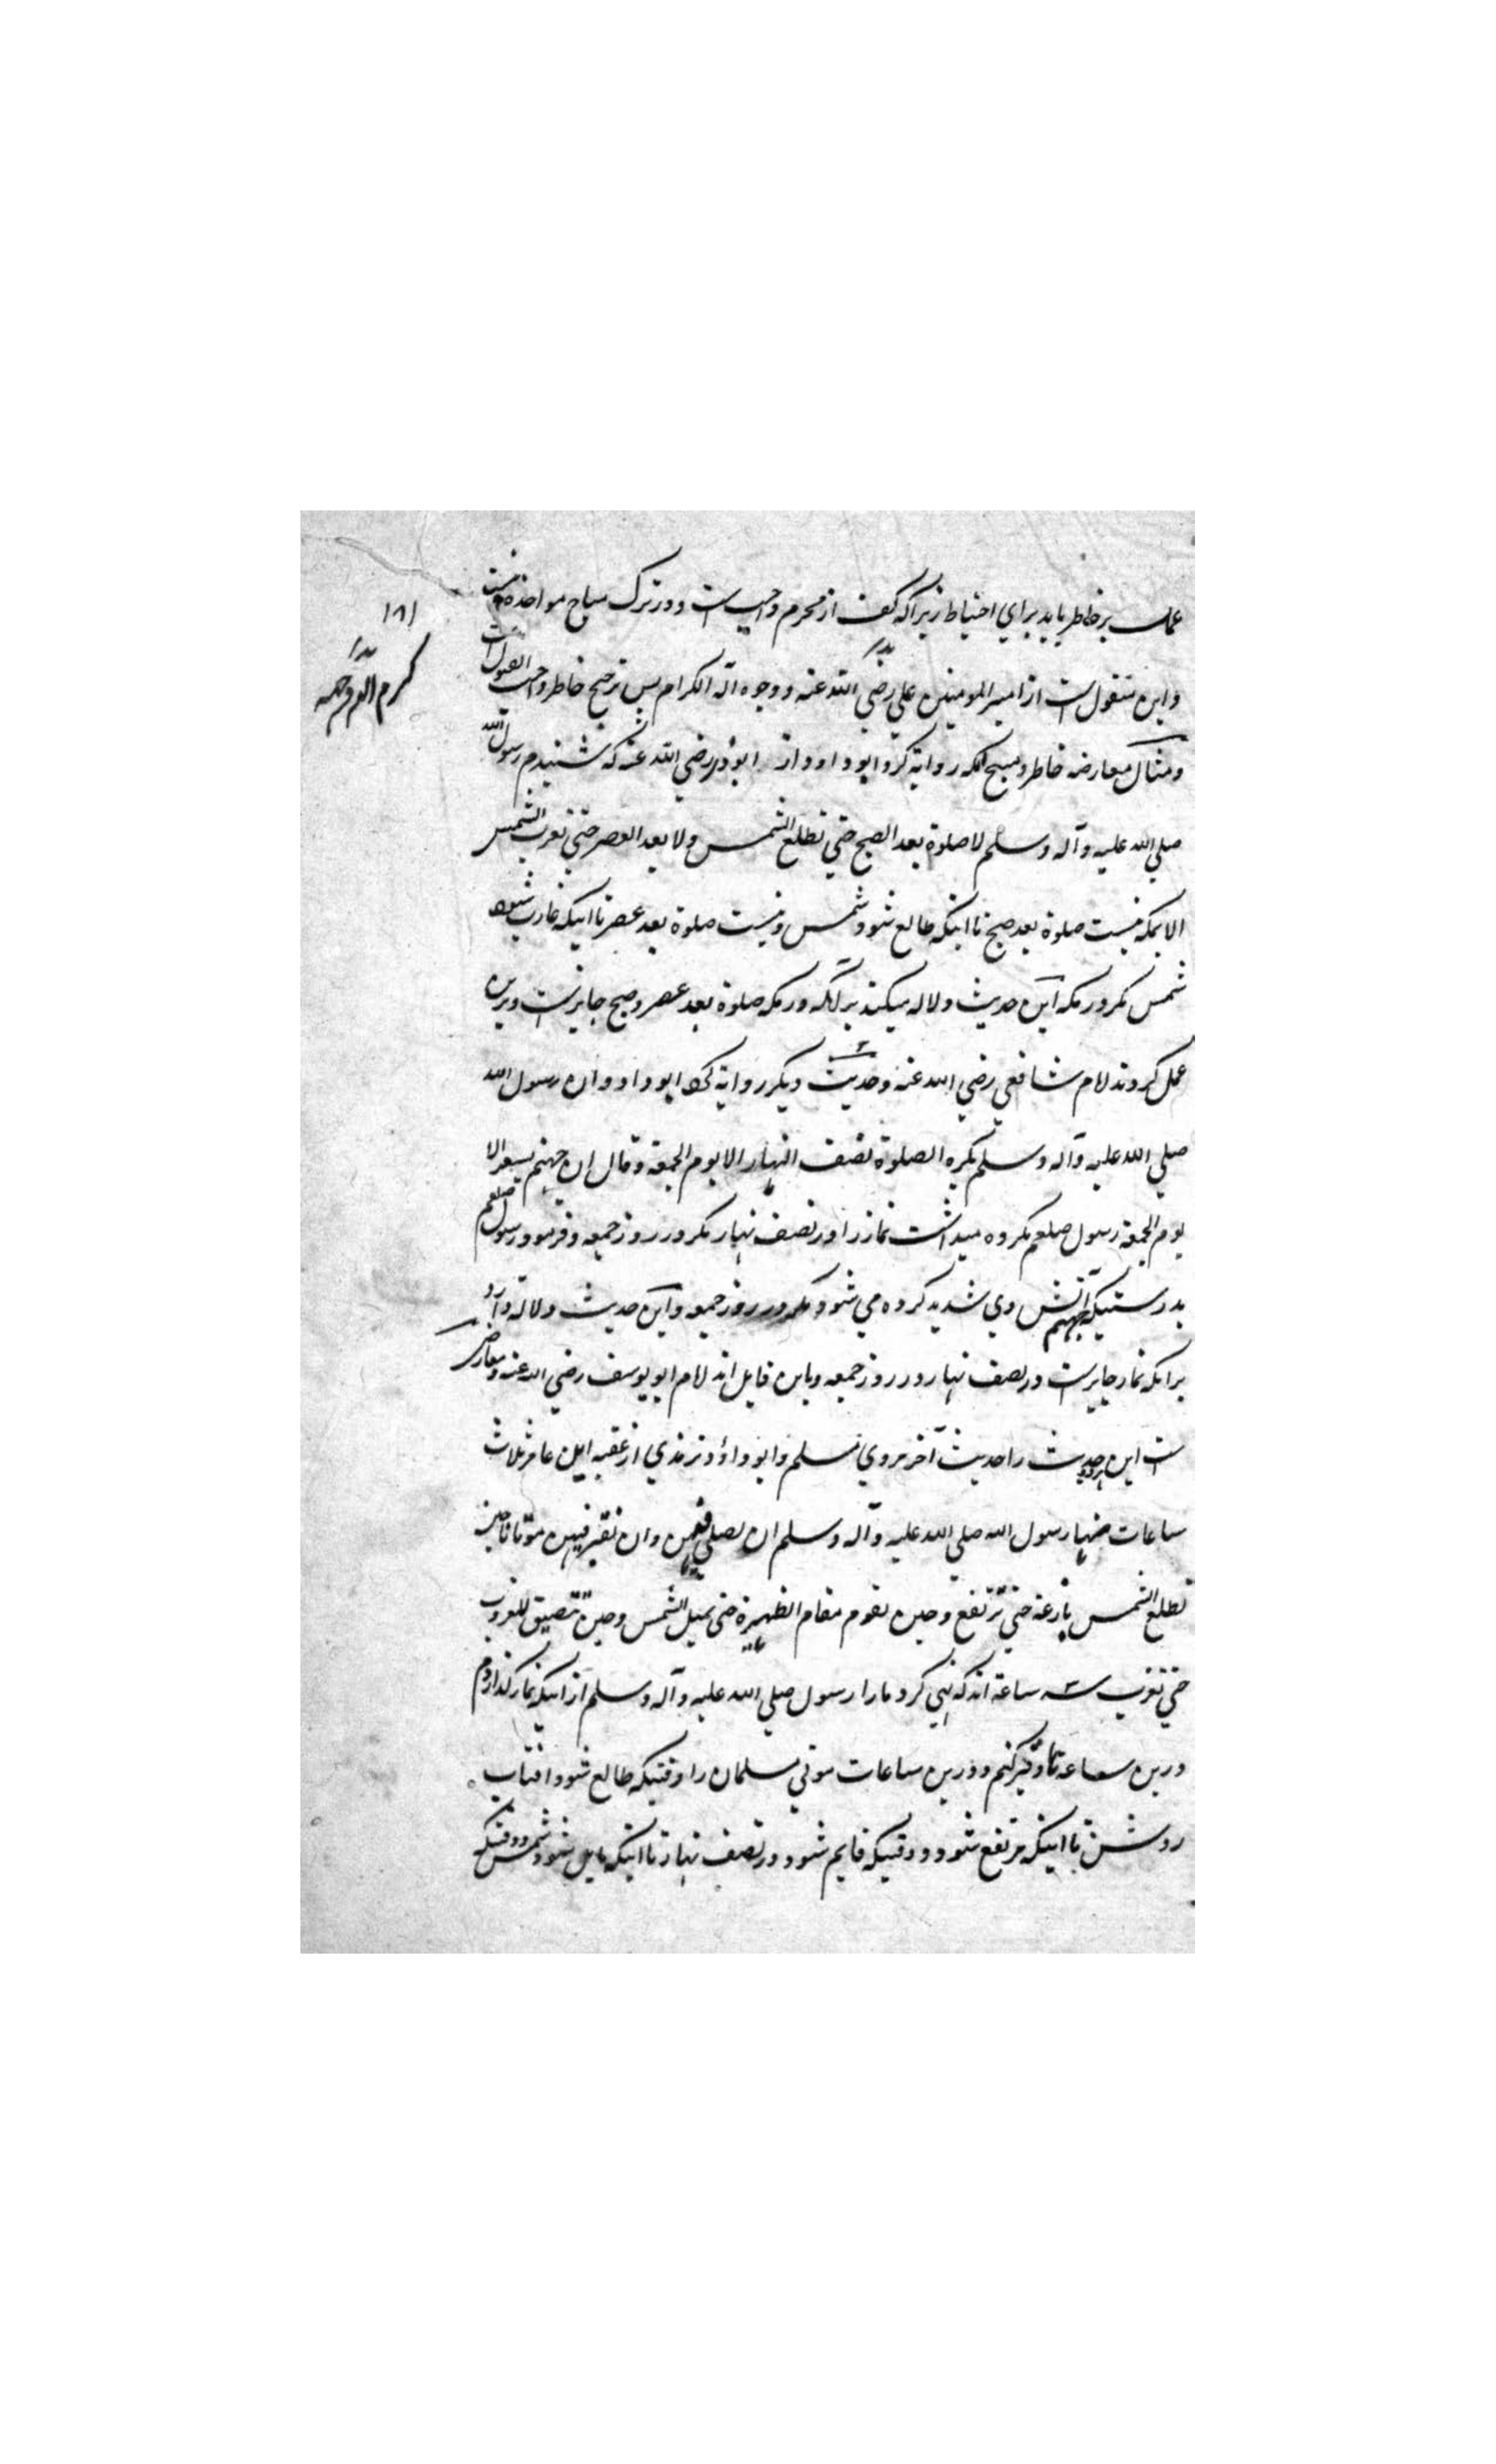 عمل بر خاطر باید برای احتیاط زیراکه کف از محرم واجبست و در ترک مباح مواخذه نیست
و این منقول ست از امیر المومنین علی رضی الله عنه و وجوه آله الکرام پس ترجیح خاطر واجب القبول ست
و مثال معارضه خاطر و مبیح آنکه روایة کرد ابو داود از ابوذر رضی الله عنه که شنیدم رسول الله
صلی الله علیه وآله وسلم لا صلوة بعد الصبح حتی تطلع الشمس ولا بعد العصر حتی تغرب الشمس
الا بمکه نیست صلوة بعد صبح تا اینکه طالع شود شمس و نیست صلوة بعد عصر تا اینکه غارب شود
شمس مگر در مکه این حدیث دلاله میکند بر آنکه در مکه صلوة بعد عصر و صبح جایزست و برین
عمل کردند امام شافعی رضی الله عنه وحدیث دیگر روایة کرد ابو داود ان رسول الله
صلی الله علیه وآله وسلم یکره الصلوة نصف النهار الا یوم الجمعة وقال ان جهنم یسعر الا
یوم الجمعة رسول صلعم مکروه میداشت نماز را در نصف نهار مگر در روز جمعه و فرمود رسول صلعم
بدرستیکه جهنم آتش وی شدید کرده می شود مگر در روز جمعه و این حدیث دلالة دارد
برانکه نماز جایزست در نصف نهار در روز جمعه و باین قایل اند امام ابو یوسف رضی الله عنه و معارض
ست این هر دو حدیث را حدیث آخر مروی مسلم و ابو داؤد و ترمذی از عقبه ابن عامر ثلاث
ساعات نهانا رسول الله صلی الله علیه وآله وسلم ان نصلی فیهن وان نقبر فیهن موتانا حین
تطلع الشمس بازغة حتی ترتفع وحین تقوم مقام الظهیرة حتی تمیل الشمس وحین تتضیق للغروب
حتی تغرب سه ساعة اند که نهی کرد مارا رسول صلی الله علیه وآله وسلم از اینکه نماز گذاریم
درین ساعه و قبر کنیم و درین ساعات موتی مسلمان را وقتیکه طالع شود افتاب
روشن تا اینکه مرتفع شود و وقتیکه قایم شود در نصف نهار تا اینکه مایل شود شمس و وقتیکه
١٨١
کرم الله وجهه